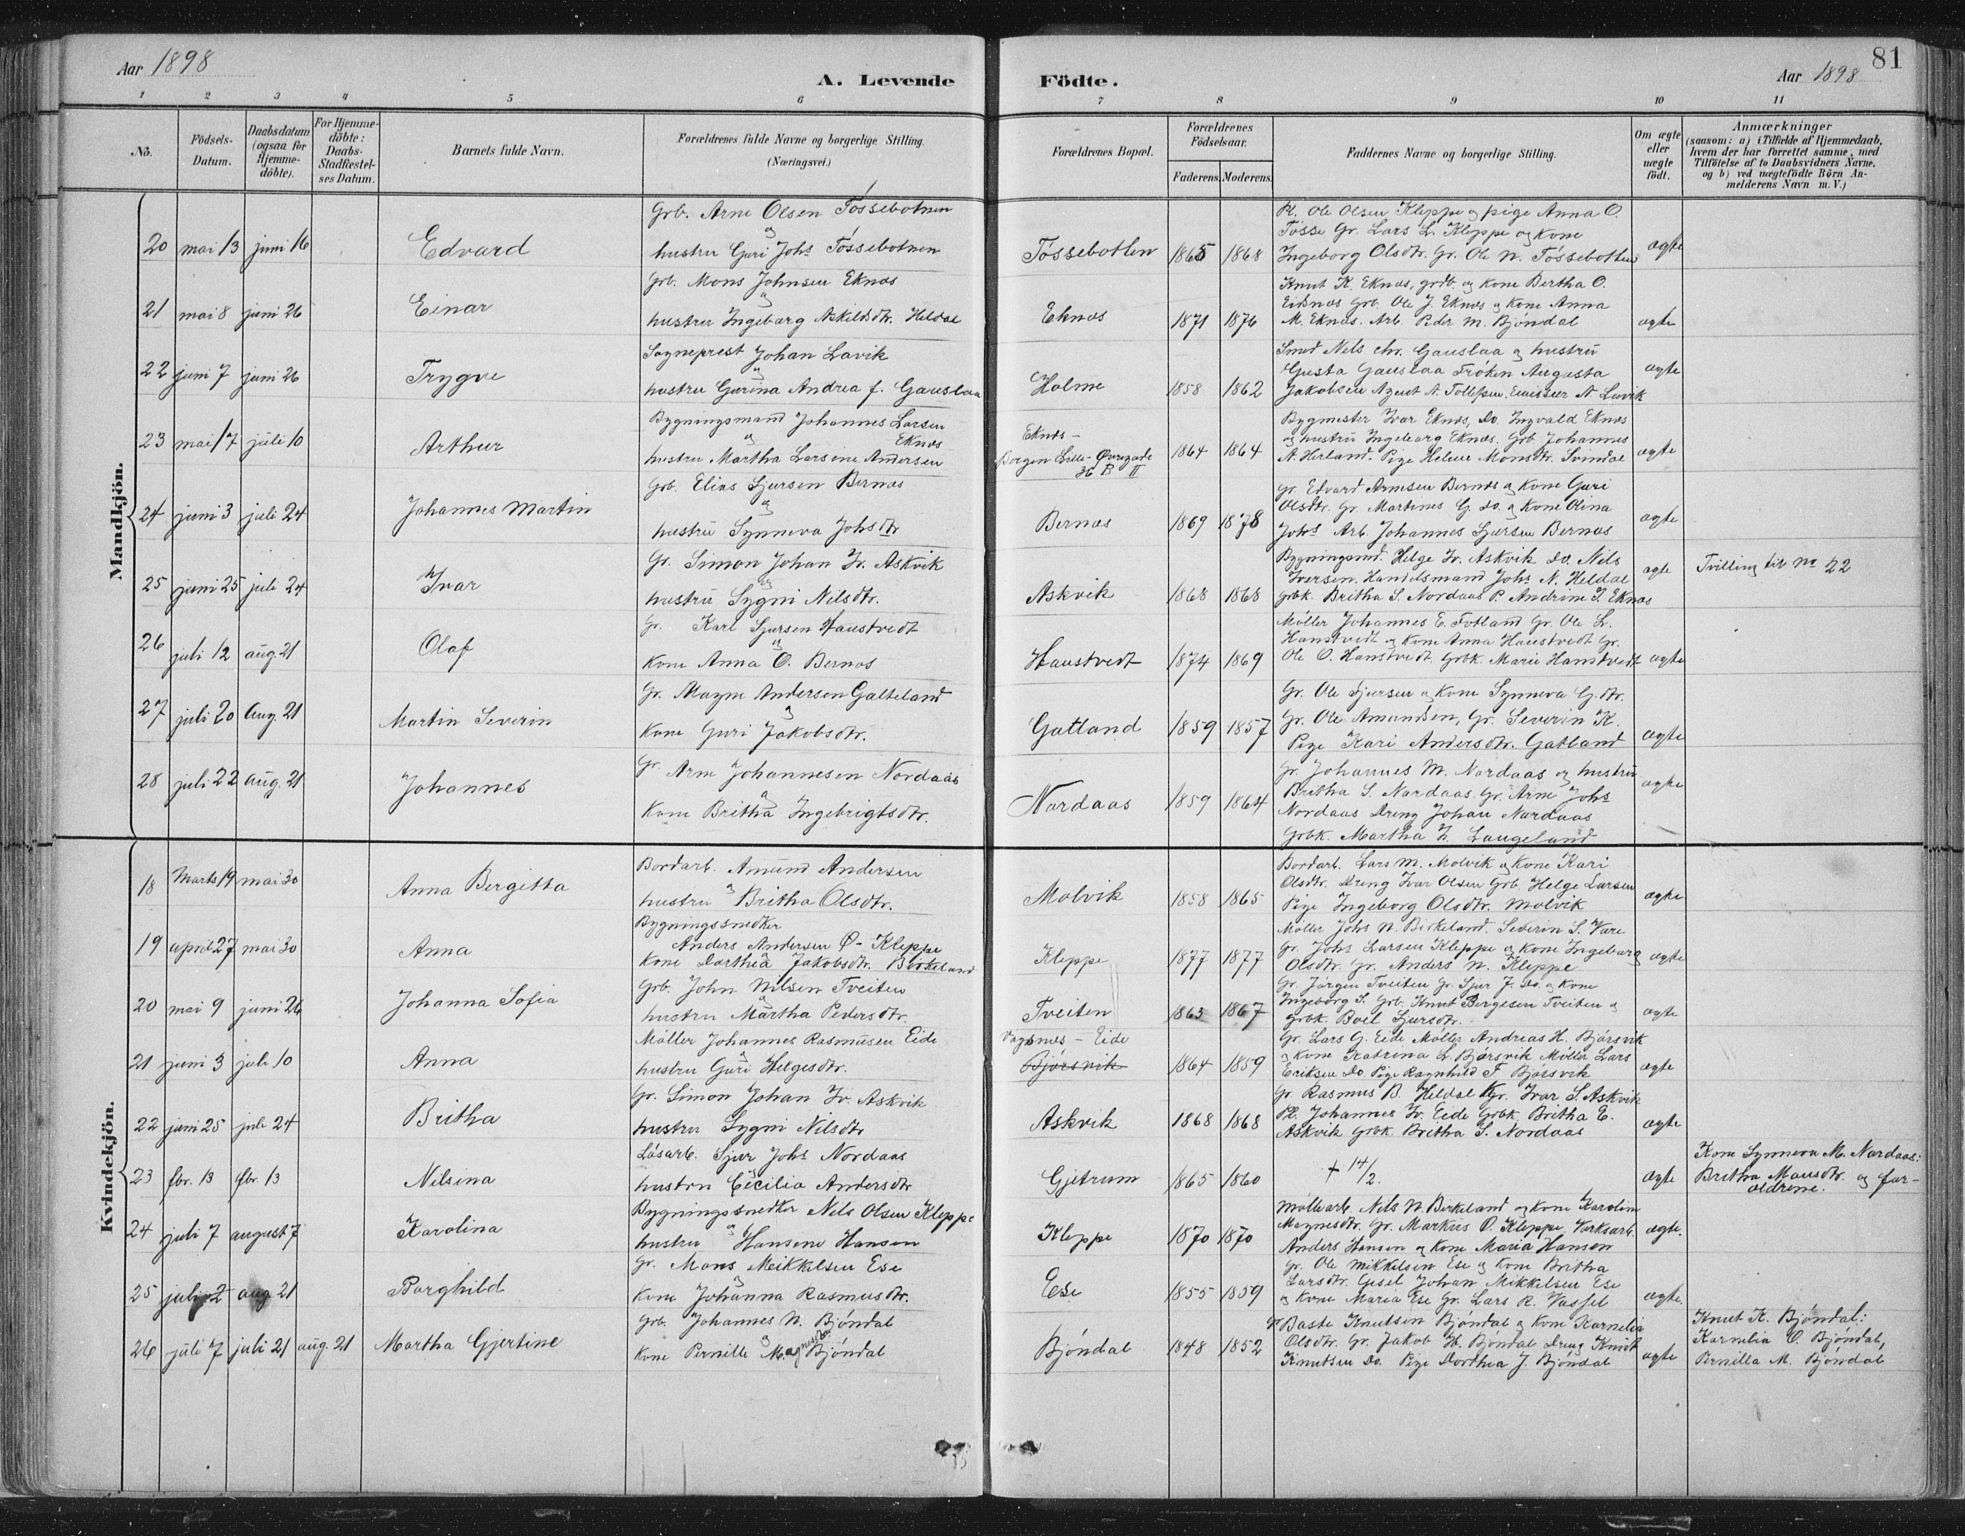 Aar 1898
A. Levende Födte.
Aar 1898
81
1 2 3 4 5 6 7 8 9 10 11
No.
Födsels-Datum.
Daabsdatum (ogsaa for Hjemme-döbte).
For Hjemme-döbte: Daabs-Stadfæstel-ses Datum.
Barnets fulde Navn.
Forældrenes fulde Navne og borgerlige Stilling.
(Næringsvei.)
Forældrenes Bopæl.
Forældrenes Födselsaar.
Faderens. Moderens.
Faddernes Navne og borgerlige Stilling.
Om ægte eller uægte födt.
Anmærkninger
(saasom: a) i Tilfælde af Hjemmedaab, hvem der har forrettet samme, med Tilföielse af to Daabsvidners Navne, og b) ved uægtefödte Börn An-melderens Navn m. V.)
Mandkjön.
20 mai 13 juni 16 Edvard
Grb. Arne Olsen Tössebotnen
og
hustru Guri Johs Tössebotnen
Tössebotten 1865 1868
Pl. Ole Olsen Kleppe og pige Anna O.
Tösse Gr. Lars L. Kleppe og Kone
Ingeborg Olsdtr. Gr. Ole N. Tössebotten
ægte
21 mai 8 juni 26 Einar
Grb. Mons Johnsen Eknæs
og
hustru Ingeborg Askildsdtr. Heldal
Eknæs 1871 1876
Knut K. Eknæs, grdb. og Kone Bertha O.
Eknæs Grb. Ole J. Eknæs og Kone Anna
M. Eknæs. Arb. Peder M. Bjöndal
ægte
22 juni 7 juni 26 Trygve
Sogneprest Johan Lavik
og
hustru Gurina Andrea f. Gauslaa
Holme 1858 1862
Smed Nels Chr. Gauslaa og hustru
Gusta Gauslaa Fröken Augusta
Jakobsen Agent A. Tollefsen. Emissær A Lavik
ægte
23 mai 17 juli 10 Arthur
Bygningsmand Johannes Larsen
og Eknæs
hustru Martha Larsene Andersen
Eknæs -
Bergen Lille-Övregade
36 B II
1864 1864
Bygmester Ivar Eknæs, Do. Ingvald Eknæs
og hustru Ingeborg Eknæs. Grb Johannes
A. Herland. Pige Helene Monsdtr. Svindal
ægte
24 juni 3 juli 24 Johannes Martin
Grb. Elias Sjursen Bernæs
og
hustru Synneva Johsdtr
Bernæs 1869 1878
Gr. Edvard Arnesen Bernæs og Kone Guri
Olsdtr. Gr. Martines G. do. og Kone Olina
Johs Arb. Johannes Sjursen Bernæs
ægte
25 juni 25 juli 24 Ivar
Gr. Simon Johan Iv. Askvik
og
hustru Sygni Nilsdtr.
Askvik 1868 1868
Bygningsmd. Helge Iv. Askvik do. Nils
Iversen. Handelsmand Johs N. Heldal
Grbk. Britha S. Nordaas P. Andrine I. Eknæs
ægte
Tvilling til No 22
26 juli 12 aug. 21 Olaf
Gr. Karl Sjursen Haustvedt
og
Kone Anna O. Bernæs
Haustvedt 1874 1869
Möller Johannes E. Fotland Gr. Ole L.
Haustvedt og Kone Anna Haustvedt Gr.
Ole O. Haustvedt. Grbk. Marie Haustvedt
ægte
27 juli 20 Aug. 21 Martin Severin
Gr. Magne Andersen Galteland
og
Kone Guri Jakobsdtr.
Gatland 1859 1857
Gr. Ole Sjursen og Kone Synneva G.dtr.
Gr. Ole Amundsen, Gr. Severin K.
Pige Kari Andersdtr. Gatland
ægte
28 juli 22 aug. 21 Johannes
Gr. Arne Johannesen Nordaas
og
Kone Britha Ingebrigtsdtr.
Nordaas 1859 1864
Gr. Johannes M. Nordaas og hustru
Britha S. Nordaas. Gr. Arne Johs
Nordaas Dreng Johan Nordaas
Grbk. Martha Langeland
ægte
Kvindekjön.
18 Marts 19 mai 30 Anna Bergitta
Bordarb. Amund Andersen
og
hustru Britha Olsdtr.
Molvik 1858 1865
Bordarb. Lars M. Molvik og Kone Kari
Olsdtr. Dreng Ivar Olsen Grb Helge Larsen
Pige Ingeborg Olsdtr. Molvik
ægte
19 april 27 mai 30 Anna
Bygningssnedker
Anders Andersen Ö- Kleppe
Kone Dorthea Jakobsdtr. Birkeland
Kleppe 1877 1877
Möller Johs N. Birkeland. Severin S. Vare
Gr. Johs Larsen Kleppe og Kone Ingeborg
Olsdtr. Gr. Anders N. Kleppe
ægte
20 mai 9 juni 26 Johanna Sofia
Grb. John Nilsen Tveiten
og
hustru Martha Pedersdtr.
Tveiten 1863 1867
Gr. Jörgen Tveiten Gr. Sjur J. Do. og Kone
Ingeborg S. Grb. Knut Bergesen Tveiten og
Grbk. Boil Sjursdtr.
ægte
21 juni 3 juli 10 Anna
Möller Johannes Rasmusen Eide
og
hustru Guri Helgesdtr.
Vagsnæs - Eide
Bjørsvik
1864 1859
Gr. Lars G. Eide Möller Andreas H. Bjørsvik
og Kone Katrina L. Bjørsvik Möller Lars
Eriksen Do Pige Ragnhild F Bjørsvik
ægte
22 juni 25 juli 24 Britha
Gr. Simon Johan Iv. Askvik
hustru Sygni Nilsdtr
Askvik 1868 1868
Gr. Rasmus B. Heldal Gr. Ivar S. Askvik
Pl. Johannes Iv. Eide Grbk Britha E.
Askvik Grbk. Britha S. Nordaas
ægte
23 fbr. 13 fbr. 13 Nelsina
Lösarb. Sjur Johs Nordaas
og
hustru Cecilia Andersdtr
Gjetrum 1865 1860
+ 14/2.
ægte
Kone Synneva M. Nordaas:
Britha Monsdtr. og for-
ældrene.
24 juli 7 august 7 Karolina
Bygningssnedker Nils Olsen Kleppe
og
hustru Hansene Hansen
Kleppe 1870 1870
Möllearb. Nels N Birkeland og Kone Karolin
Magnesdtr. Gr. Markus O. Kleppe, Værksarb.
Anders Hansen og Kone Maria Hansen
ægte.
25 juli 2 aug 21 Borghild
Gr. Mons Meikkelsen Ese
og
Kone Johanna Rasmusdtr.
Ese 1855 1859
Gr. Ole Mikkelsen Ese og Kone Britha
Larsdtr. Gesel Johan Mikkelsen Ese
og Kone Maria Ese Gr. Lars R. Vassel
ægte.
26 juli 7 juli 21 aug. 21 Martha Gjertine
Grb. Johannes N. Bjöndal
og
Kone Pernille Magnusdtr Bjöndal
Bjöndal 1848 1852
Baste Knutsen Bjöndal og Kone Karnelia
Olsdtr. Gr. Jakob H. Bjöndal Dreng Knut
Knutsen Do. Pige Dorthea J. Bjöndal
ægte
Knut K. Bjöndal:
Karnelia O. Bjöndal,
Pernilla M. Bjöndal